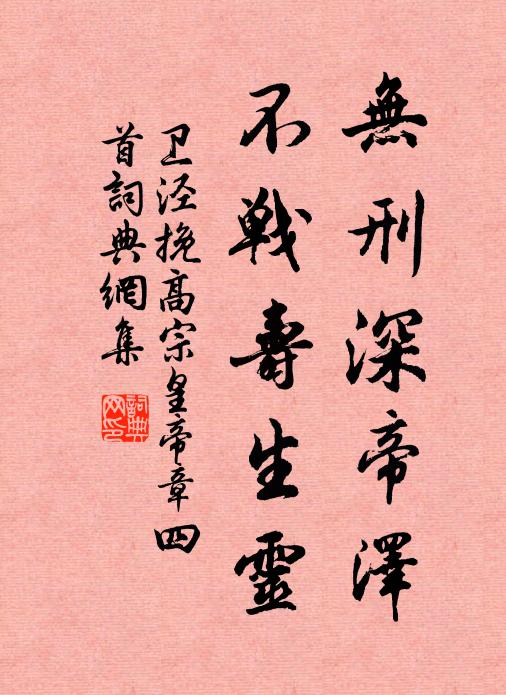 無刑深帝澤
不戰壽生靈
卫泾挽高宗皇帝章四
首詞典網集
詞典
网印